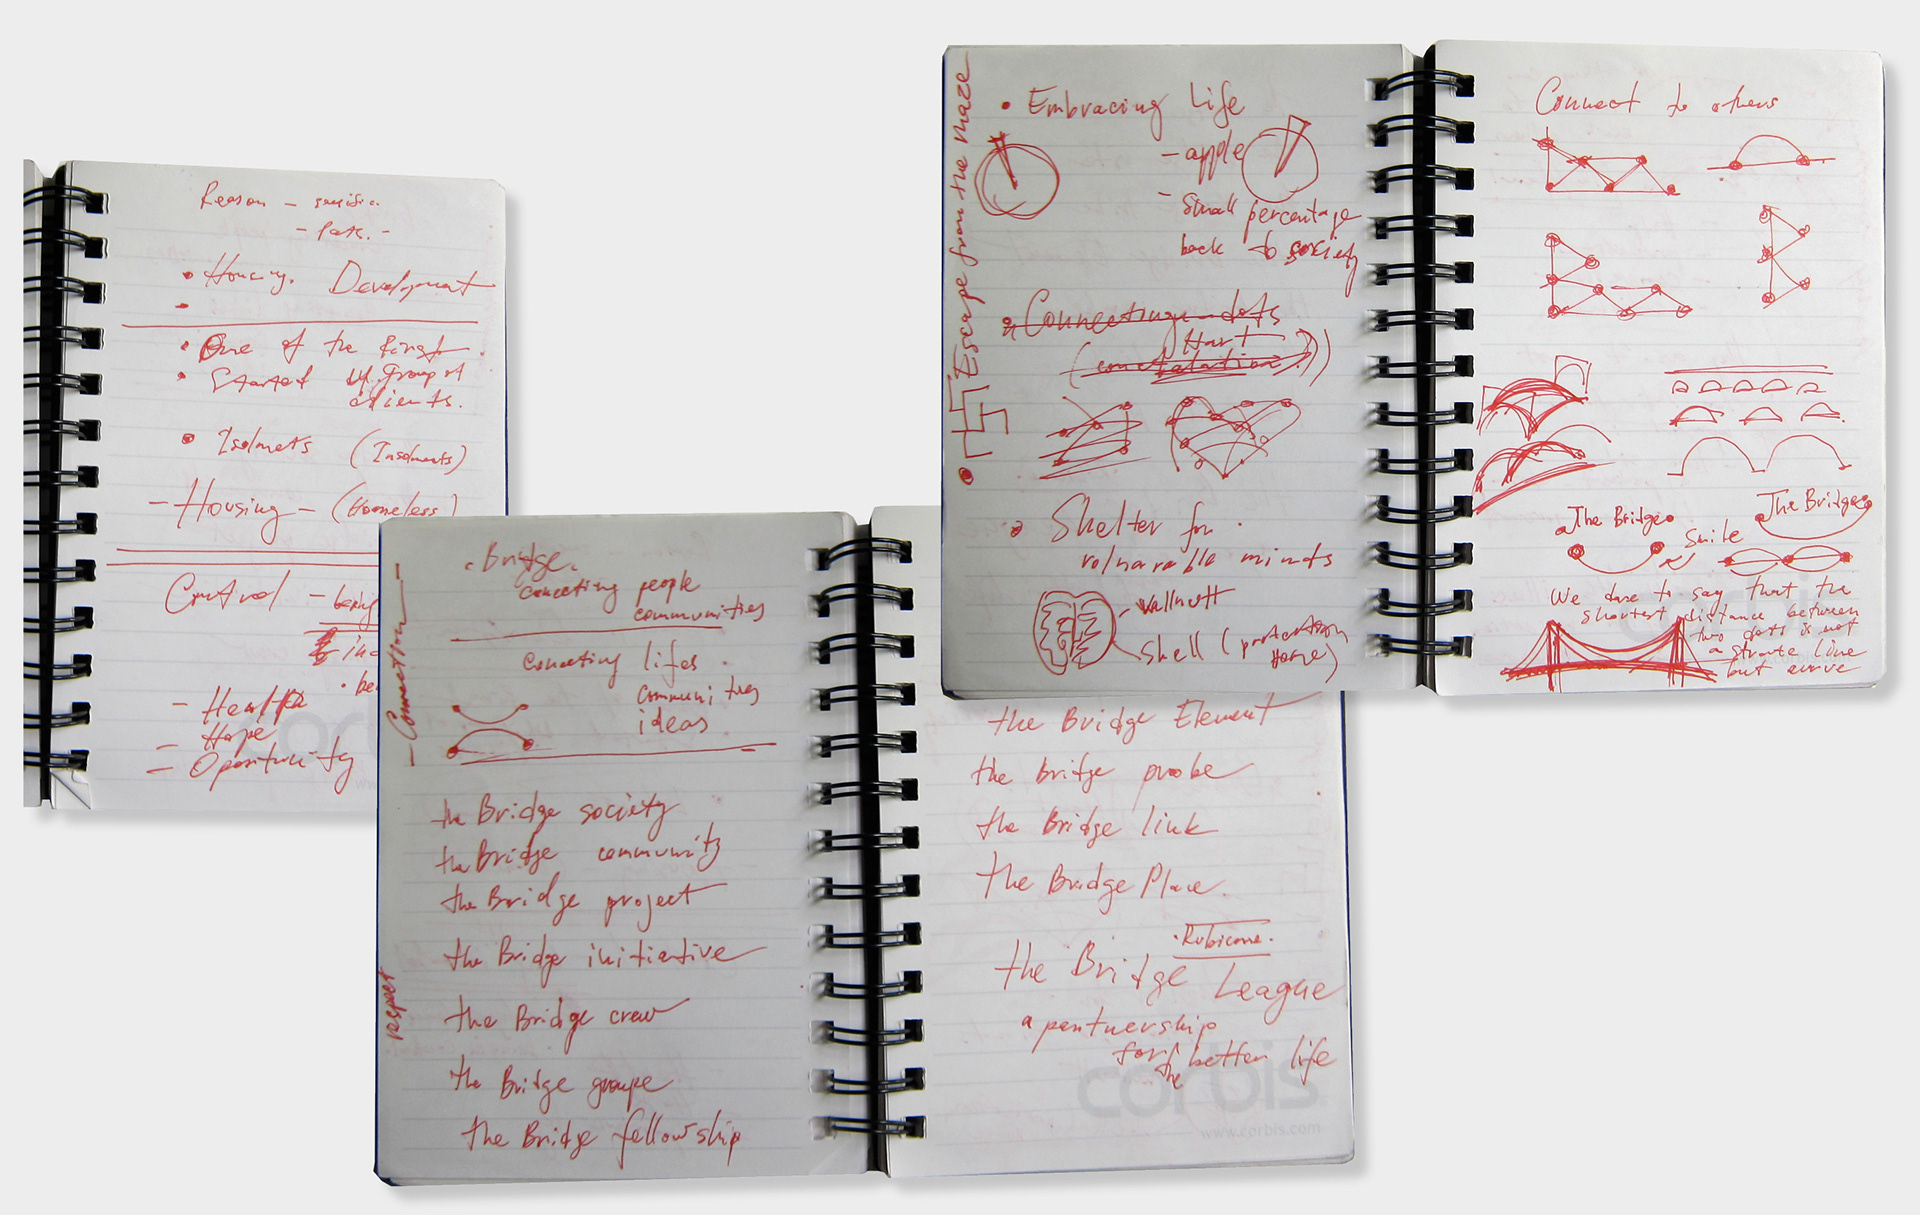 Reason -
• Housing. Development
• One of the first
• Started
clients.
• Isolments (Insolments)
- Housing - (Homeless)
Control - being
- Health
- Hope
- Oportunity
- Connection -
• Bridge.
connecting people
communities
conecting lifes
communities
ideas
the Bridge society
the Bridge community
the Bridge project
the Bridge initiative
respect
the Bridge crew
the Bridge groupe
the Bridge fellowship
the Bridge Element
the bridge probe
the Bridge link
the Bridge Place.
• Rubicone •
the Bridge League
a partnership
for the better life
corbis
www.corbis.com
Escape from the maze
• Embracing Life
- apple
- Small percentage
back to society
Connecting dots
Hart
• Shelter for
volnarable minds
Wallnutt
Shell (protection
Home)
Connect to others
The Bridge
The Bridge
Smile
We dare to say that the
shortest distance between
two dots is not
a strate line
but curve